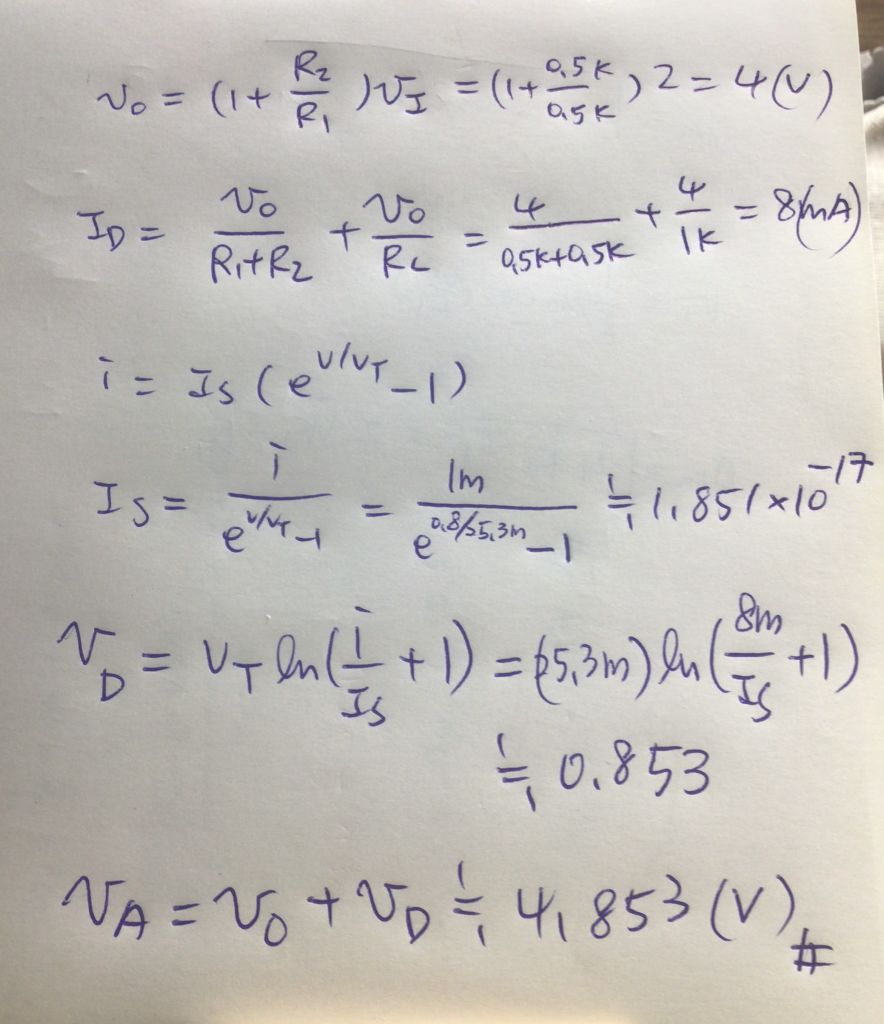 v₀ = (1 + R₂/R₁) v_I = (1 + 0.5K/0.5K) 2 = 4 (V)
I_D = v₀/(R₁+R₂) + v₀/R_L = 4/(0.5K+0.5K) + 4/1K = 8(mA)
i = I_S (e^(V/V_T) − 1)
I_S = i/(e^(V/V_T) − 1) = 1m/(e^(0.8/25.3m) − 1) ≒ 1.851×10⁻¹⁷
v_D = V_T ln(i/I_S + 1) = (25.3m) ln(8m/I_S + 1)
≒ 0.853
v_A = v₀ + v_D ≒ 4.853 (V) #